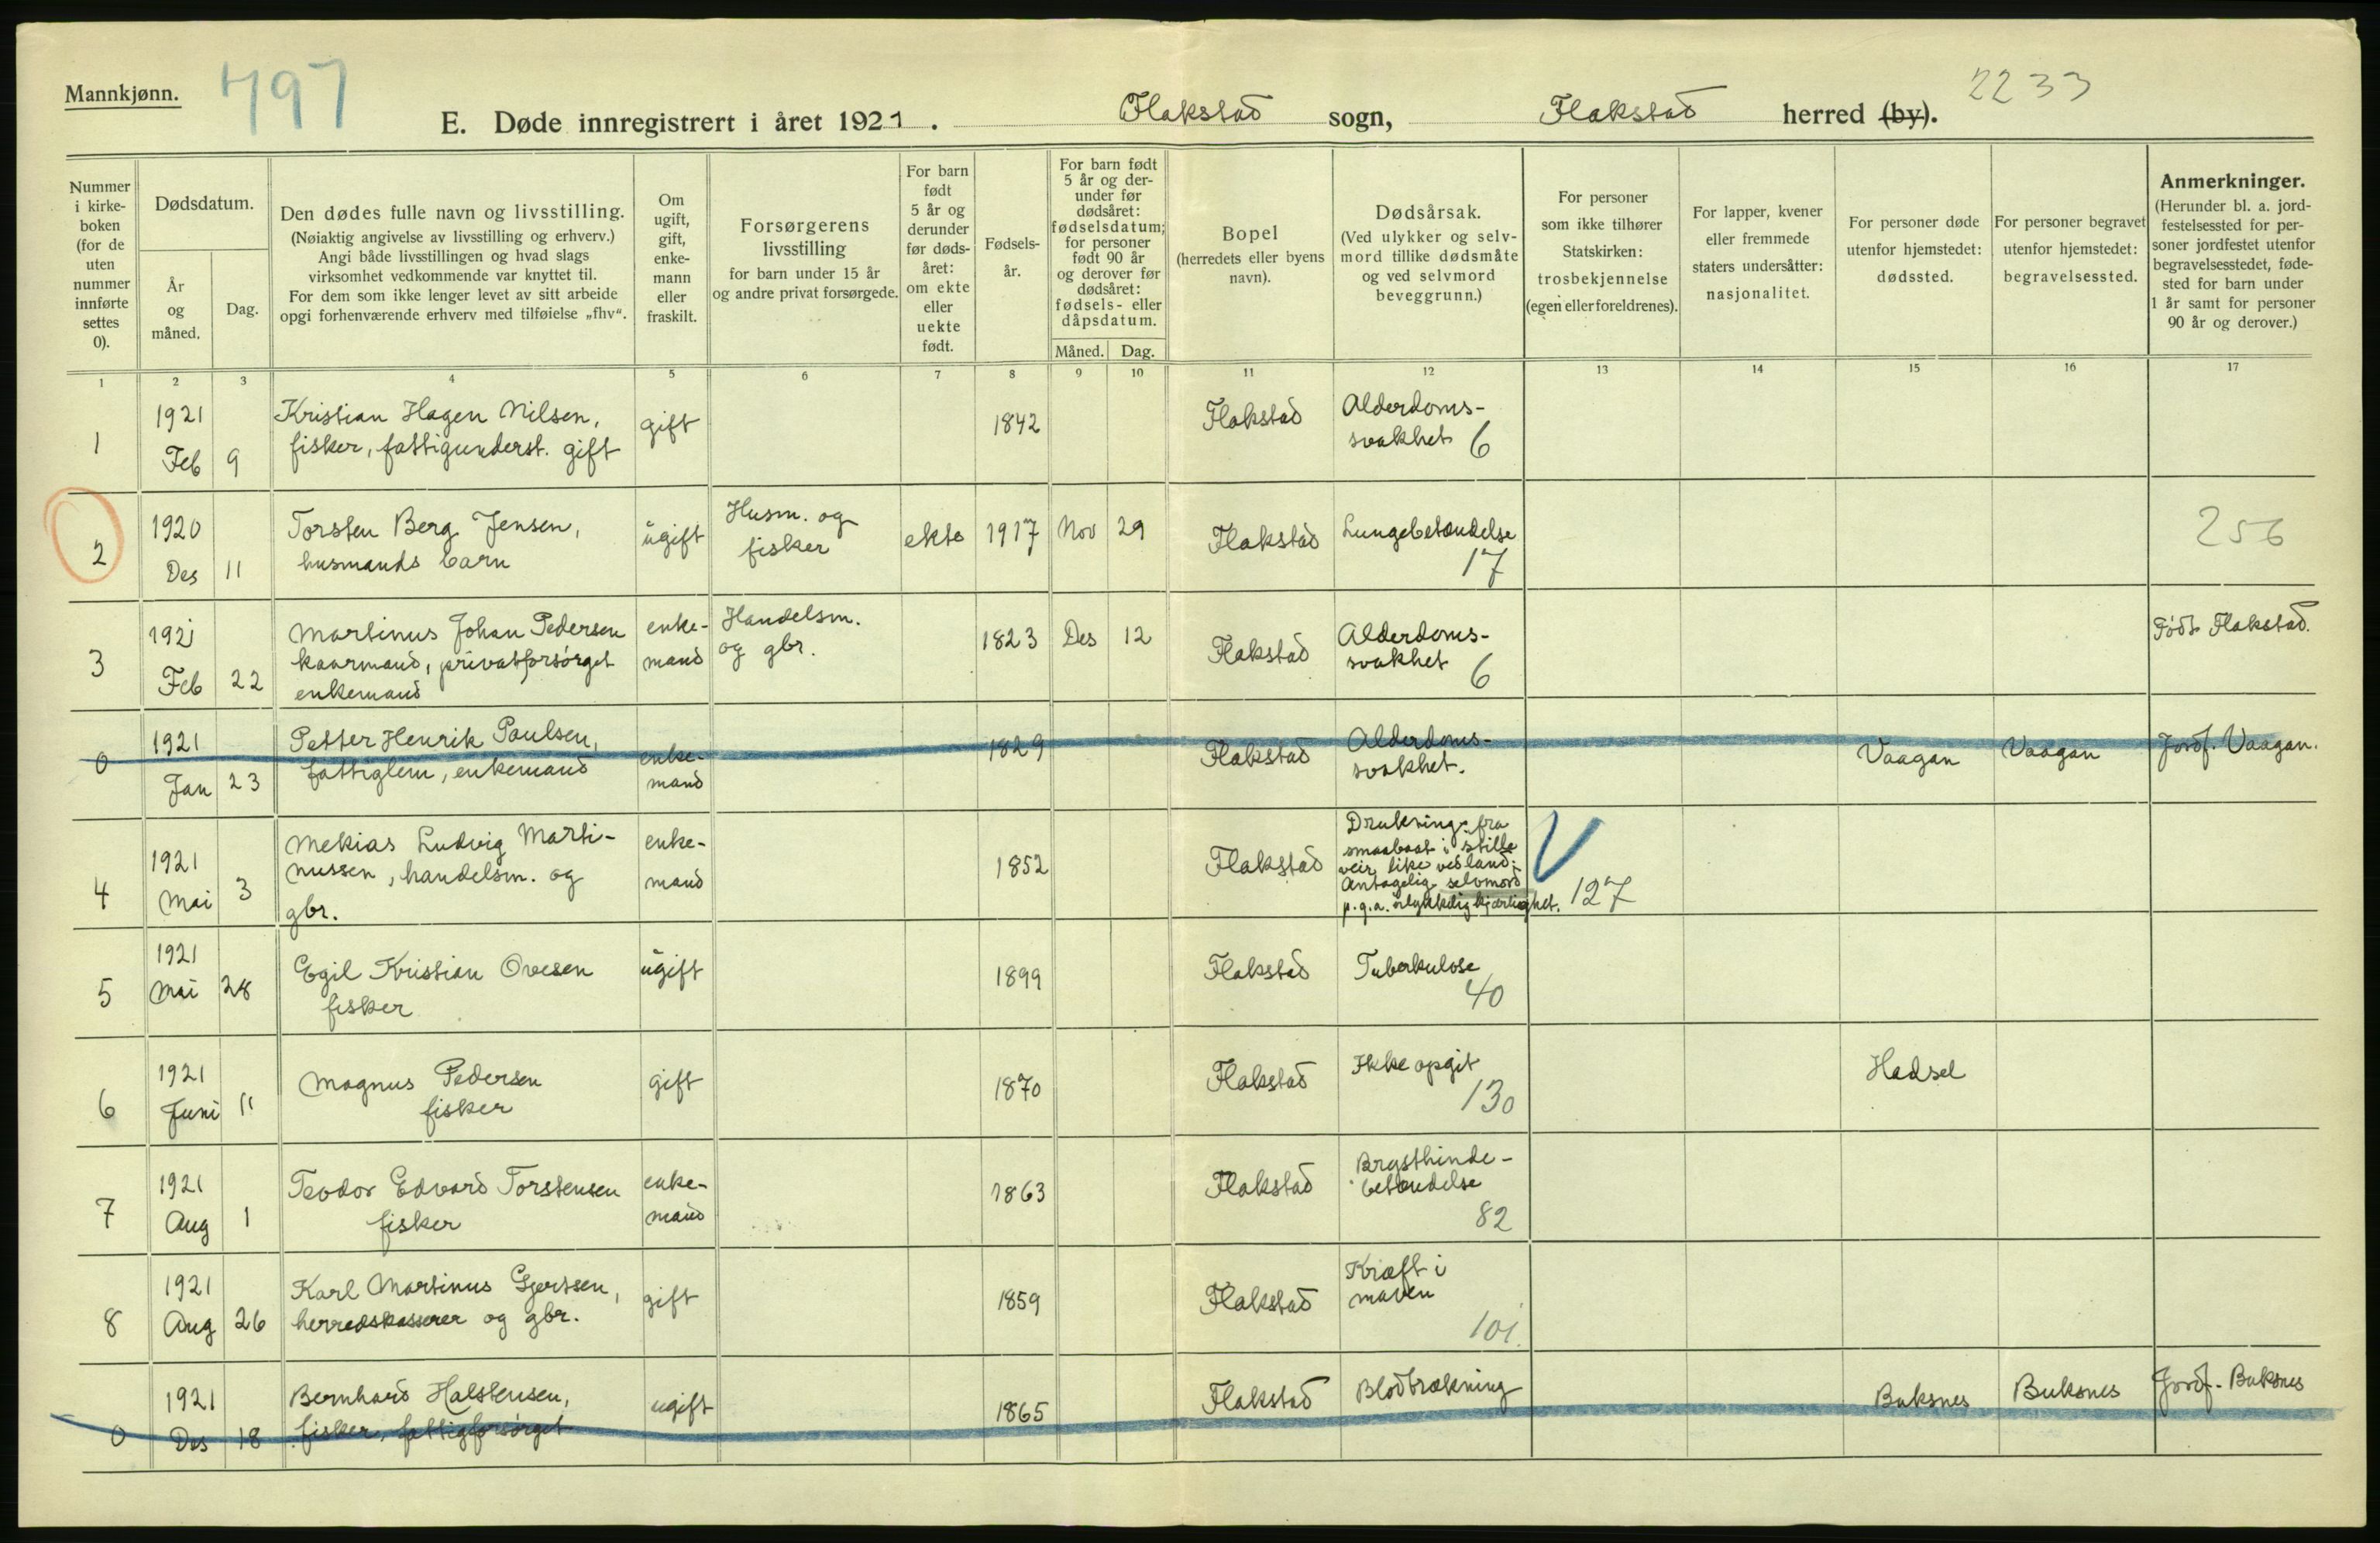 Mannkjønn. 797
2233
E. Døde innregistrert i året 1921. Flakstad sogn, Flakstad herred (by).
Nummer i kirke-boken (for de uten nummer innførte settes 0).
Dødsdatum.
År og måned.
Dag.
Den dødes fulle navn og livsstilling.
(Nøiaktig angivelse av livsstilling og erhverv.)
Angi både livsstillingen og hvad slags
virksomhet vedkommende var knyttet til.
For dem som ikke lenger levet av sitt arbeide
opgi forhenværende erhverv med tilføielse „fhv“.
Om ugift, gift, enke-mann eller fraskilt.
Forsørgerens
livsstilling
for barn under 15 år
og andre privat forsørgede.
For barn født 5 år og derunder før døds-året: om ekte eller uekte født.
Fødsels-år.
For barn født 5 år og der-under før dødsåret: fødselsdatum; for personer født 90 år og derover før dødsåret: fødsels- eller dåpsdatum.
Måned. Dag.
Bopel
(herredets eller byens
navn).
Dødsårsak.
(Ved ulykker og selv-
mord tillike dødsmåte
og ved selvmord
beveggrunn.)
For personer
som ikke tilhører
Statskirken:
trosbekjennelse
(egen eller foreldrenes).
For lapper, kvener
eller fremmede
staters undersåtter:
nasjonalitet.
For personer døde
utenfor hjemstedet:
dødssted.
For personer begravet
utenfor hjemstedet:
begravelsessted.
Anmerkninger.
(Herunder bl. a. jord-
festelsessted for per-
soner jordfestet utenfor
begravelsesstedet, føde-
sted for barn under
1 år samt for personer
90 år og derover.)
1 2 3 4 5 6 7 8 9 10 11 12 13 14 15 16 17
1 1921 Feb 9
Kristian Hagen Nilsen,
fisker, fattigunderst. gift
gift 1842 Flakstad
Alderdoms-
svakhet 6
2 1920 Des 11
Torsten Berg Jensen,
husmands barn
ugift
Husm. og
fisker
ekte 1917 Nov 29 Flakstad
Lungebetændelse
17
256
3 1921 Feb 22
Martinus Johan Pedersen
kaarmand, privatforsørget
enkemand
enke-
mand
Handelsm.
og gbr.
1823 Des 12 Flakstad
Alderdoms-
svakhet 6
Født Flakstad.
0 1921 Jan 23
Petter Henrik Paulsen,
fattiglem, enkemand
enke-
mand
1829 Flakstad
Alderdoms-
svakhet.
Vaagan Vaagan Jordf. Vaagan.
4 1921 Mai 3
Mekias Ludvig Marti-
nussen, handelsm. og
gbr.
enke-
mand
1852 Flakstad
Drukning fra
smaabaat i stille
veir like ved land;
Antagelig selvmord
p.g.a. ulykkelig kjærlighet. 127
5 1921 Mai 28
Egil Kristian Ovesen
fisker
ugift 1899 Flakstad
Tuberkulose
40
6 1921 Juni 11
Magnus Pedersen
fisker
gift 1870 Flakstad
Ikke opgit
130
Hadsel
7 1921 Aug 1
Teodor Edvard Torstensen
fisker
enke-
mand
1863 Flakstad
Brysthinde-
betændelse
82
8 1921 Aug 26
Karl Martinus Gjertsen,
herredskasserer og gbr.
gift 1859 Flakstad
Kræft i
maven
101.
0 1921 Des 18
Bernhard Halstensen,
fisker, fattigforsørget
ugift 1865 Flakstad
Blodbrækning
Buksnes Buksnes Jordf. Buksnes